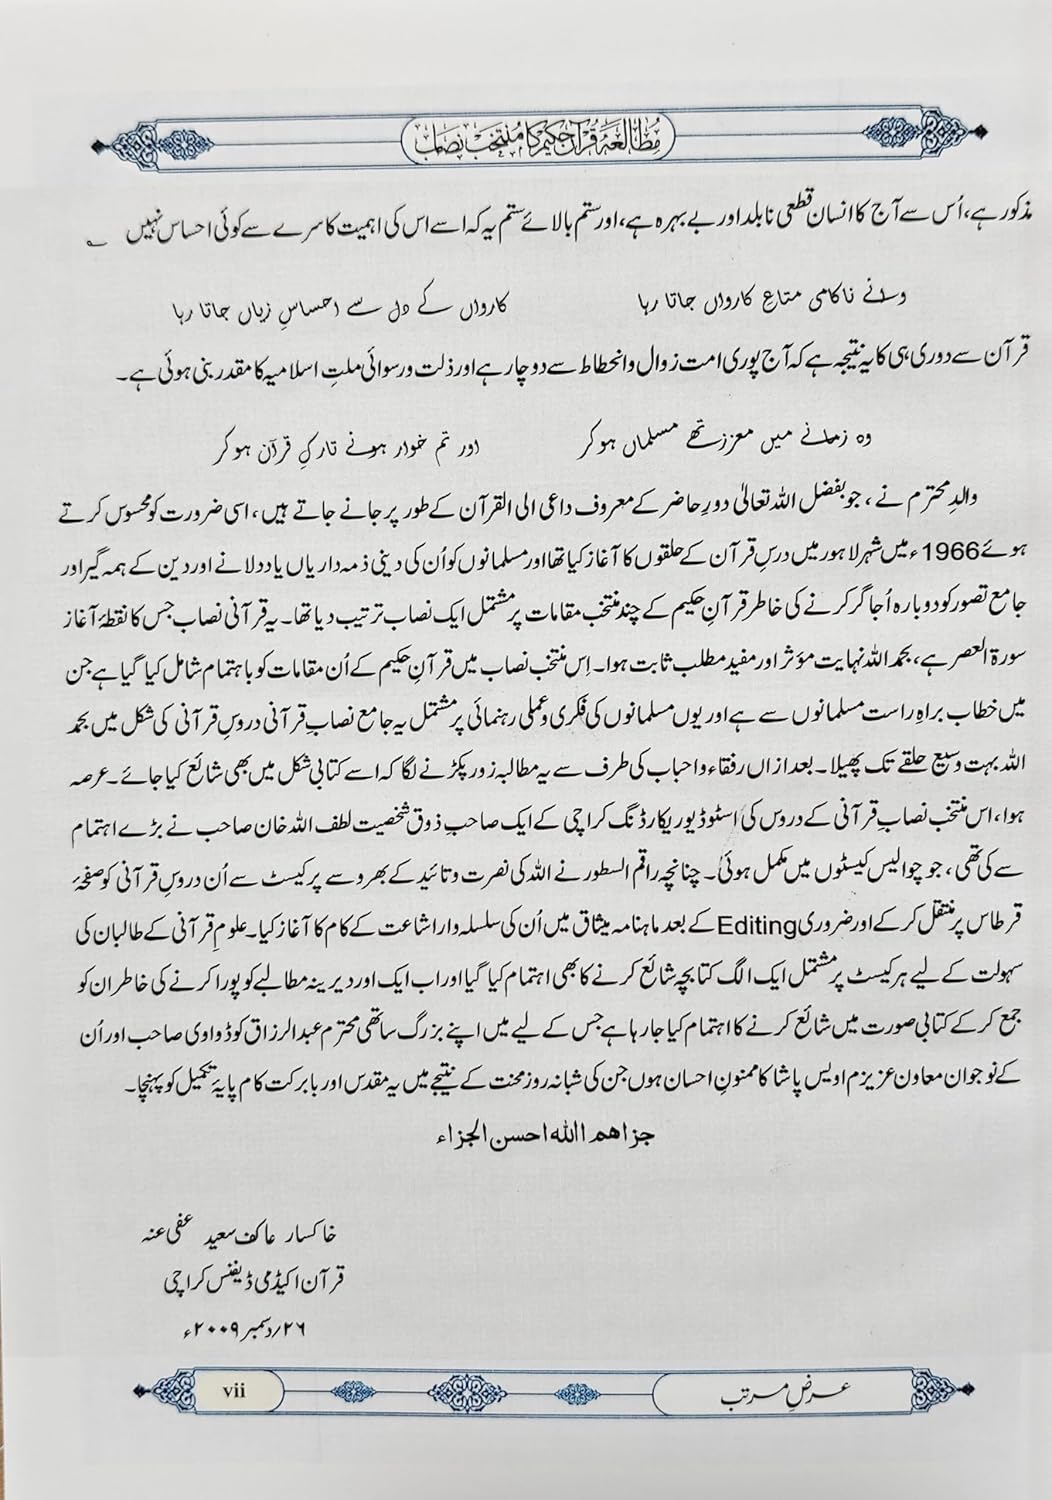 مطالعۂ قرآن حکیم کا منتخب نصاب
مذکور ہے، اُس سے آج کا انسان قطعی نابلد اور بے بہرہ ہے، اور ستم بالائے ستم یہ کہ اسے اس کی اہمیت کا سرے سے کوئی احساس نہیں ؎
وائے ناکامی متاعِ کارواں جاتا رہا کارواں کے دل سے احساسِ زیاں جاتا رہا
قرآن سے دوری ہی کا یہ نتیجہ ہے کہ آج پوری امت زوال و انحطاط سے دوچار ہے اور ذلت و رسوائی ملتِ اسلامیہ کا مقدر بنی ہوئی ہے۔
وہ زمانے میں معزز تھے مسلماں ہو کر اور تم خوار ہوئے تارکِ قرآن ہو کر
والدِ محترم نے، جو بفضل اللہ تعالیٰ دورِ حاضر کے معروف داعی الی القرآن کے طور پر جانے جاتے ہیں، اسی ضرورت کو محسوس کرتے
ہوئے 1966ء میں شہر لاہور میں درسِ قرآن کے حلقوں کا آغاز کیا تھا اور مسلمانوں کو اُن کی دینی ذمہ داریاں یاد دلانے اور دین کے ہمہ گیر اور
جامع تصور کو دوبارہ اُجاگر کرنے کی خاطر قرآنِ حکیم کے چند منتخب مقامات پر مشتمل ایک نصاب ترتیب دیا تھا۔ یہ قرآنی نصاب جس کا نقطۂ آغاز
سورۃ العصر ہے، بحمد اللہ نہایت مؤثر اور مفید مطلب ثابت ہوا۔ اِس منتخب نصاب میں قرآنِ حکیم کے اُن مقامات کو باہتمام شامل کیا گیا ہے جن
میں خطاب براہِ راست مسلمانوں سے ہے اور یوں مسلمانوں کی فکری و عملی رہنمائی پر مشتمل یہ جامع نصابِ قرآنی دروسِ قرآنی کی شکل میں بحمد
اللہ بہت وسیع حلقے تک پھیلا۔ بعد ازاں رفقاء و احباب کی طرف سے یہ مطالبہ زور پکڑنے لگا کہ اسے کتابی شکل میں بھی شائع کیا جائے۔ عرصہ
ہوا، اس منتخب نصابِ قرآنی کے دروس کی اسٹوڈیو ریکارڈنگ کراچی کے ایک صاحبِ ذوق شخصیت لطف اللہ خان صاحب نے بڑے اہتمام
سے کی تھی، جو چوالیس کیسٹوں میں مکمل ہوئی۔ چنانچہ راقم السطور نے اللہ کی نصرت و تائید کے بھروسے پر کیسٹ سے اُن دروسِ قرآنی کو صفحۂ
قرطاس پر منتقل کر کے اور ضروری Editing کے بعد ماہنامہ میثاق میں اُن کی سلسلہ وار اشاعت کے کام کا آغاز کیا۔ علومِ قرآنی کے طالبان کی
سہولت کے لیے ہر کیسٹ پر مشتمل ایک الگ کتابچہ شائع کرنے کا بھی اہتمام کیا گیا اور اب ایک اور دیرینہ مطالبے کو پورا کرنے کی خاطر ان کو
جمع کر کے کتابی صورت میں شائع کرنے کا اہتمام کیا جا رہا ہے جس کے لیے میں اپنے بزرگ ساتھی محترم عبدالرزاق کوڈواوی صاحب اور اُن
کے نوجوان معاون عزیزم اویس پاشا کا ممنونِ احسان ہوں جن کی شبانہ روز محنت کے نتیجے میں یہ مقدس اور بابرکت کام پایۂ تکمیل کو پہنچا۔
جزاهم الله احسن الجزاء
خاکسار عاکف سعید عفی عنہ
قرآن اکیڈمی ڈیفنس کراچی
۲۶/دسمبر ۲۰۰۹ء
عرضِ مرتب
vii